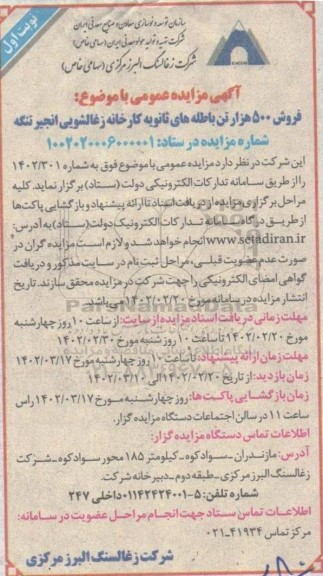 نوبت اول
سازمان توسعه و نوسازی معادن و صنایع معدنی ایران
شرکت تهیه و تولید مواد معدنی ایران (سهامی خاص)
شرکت زغالسنگ البرز مرکزی (سهامی خاص)
آگهی مزایده عمومی با موضوع:
فروش ۵۰۰ هزار تن باطله های ثانویه کارخانه زغالشویی انجیر تنگه
شماره مزایده در ستاد: ۱۰۰۲۰۲۰۰۰۶۰۰۰۰۰۱
این شرکت در نظر دارد مزایده عمومی با موضوع فوق به شماره ۱۴۰۲/۳۰۱
را از طریق سامانه تدارکات الکترونیکی دولت (ستاد) برگزار نماید. کلیه
مراحل برگزاری مزایده از دریافت اسناد تا ارائه پیشنهاد و بازگشایی پاکت‌ها
از طریق درگاه سامانه تدارکات الکترونیک دولت (ستاد) به آدرس:
www.setadiran.ir انجام خواهد شد و لازم است مزایده گران در
صورت عدم عضویت قبلی، مراحل ثبت نام در سایت مذکور و دریافت
گواهی امضای الکترونیکی را جهت شرکت در مزایده محقق سازند. تاریخ
انتشار مزایده در سامانه مورخ ۱۴۰۲/۰۲/۲۰ می باشد.
مهلت زمانی دریافت اسناد مزایده از سایت: از ساعت ۱۰ روز چهارشنبه
مورخ ۱۴۰۲/۰۲/۲۰ تا ساعت ۱۰ روز شنبه مورخ ۱۴۰۲/۰۲/۳۰
مهلت زمان ارائه پیشنهاد: تا ساعت ۱۰ روز چهارشنبه مورخ ۱۴۰۲/۰۳/۱۷
زمان بازدید: از تاریخ ۱۴۰۲/۰۲/۲۰ الی ۱۴۰۲/۰۳/۱۰
زمان بازگشایی پاکت ها: روز چهارشنبه مورخ ۱۴۰۲/۰۳/۱۷ راس
ساعت ۱۱ در سالن اجتماعات دستگاه مزایده گزار.
اطلاعات تماس دستگاه مزایده گزار:
آدرس: مازندران - سوادکوه - کیلومتر ۱۸۵ محور سوادکوه - شرکت
زغالسنگ البرز مرکزی - طبقه دوم - دبیرخانه شرکت.
شماره تلفن: ۵-۰۱۱۴۲۴۲۴۰۰۱ داخلی ۲۴۷
اطلاعات تماس ستاد جهت انجام مراحل عضویت در سامانه:
مرکز تماس ۴۱۹۳۴-۰۲۱
شرکت زغالسنگ البرز مرکزی